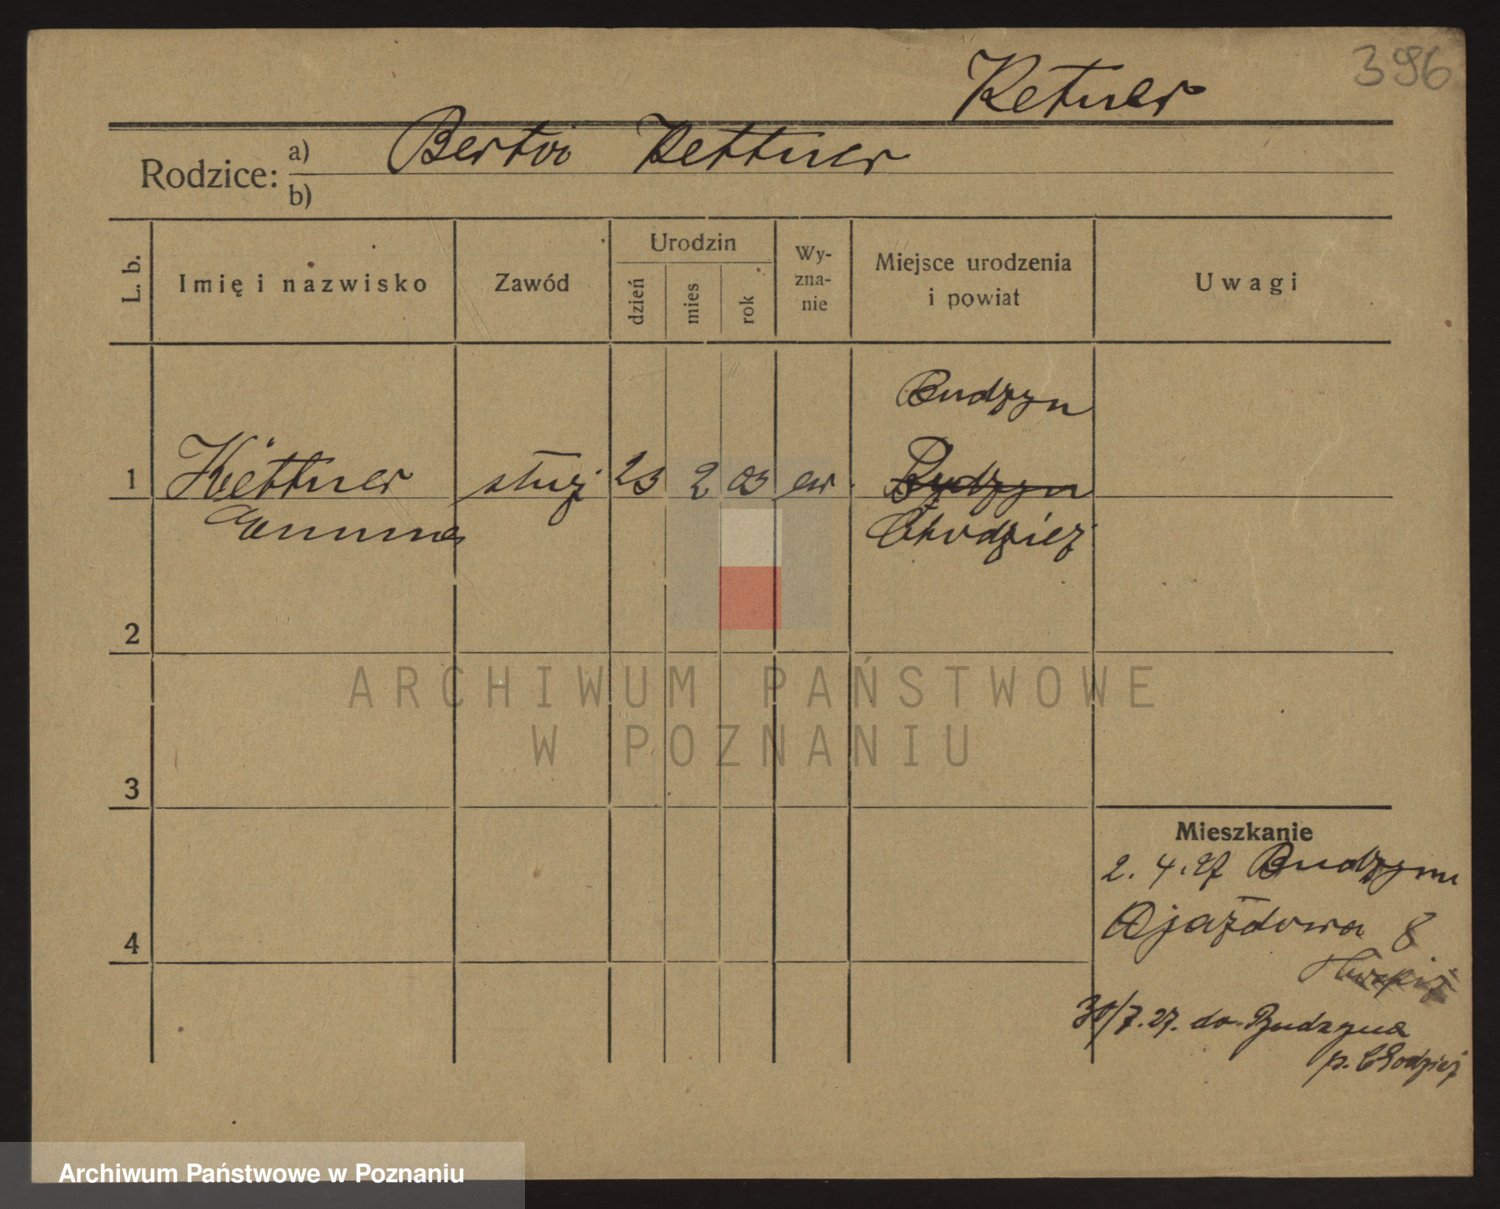 396
Ketner
Rodzice: a) Kettner
b)
L. b.
Imię i nazwisko
Zawód
Urodzin
dzień
mies
rok
Wy-
zna-
nie
Miejsce urodzenia
i powiat
Uwagi
Budzyn
1 Kettner służ 23 2 03 ew. Budzyn
Emma Chodzież
2
3
4
Mieszkanie
2. 4. 27 Budzynu
8
30/7.27. do Budzyna
p. Chodzież
ARCHIWUM PAŃSTWOWE
W POZNANIU
Archiwum Państwowe w Poznaniu